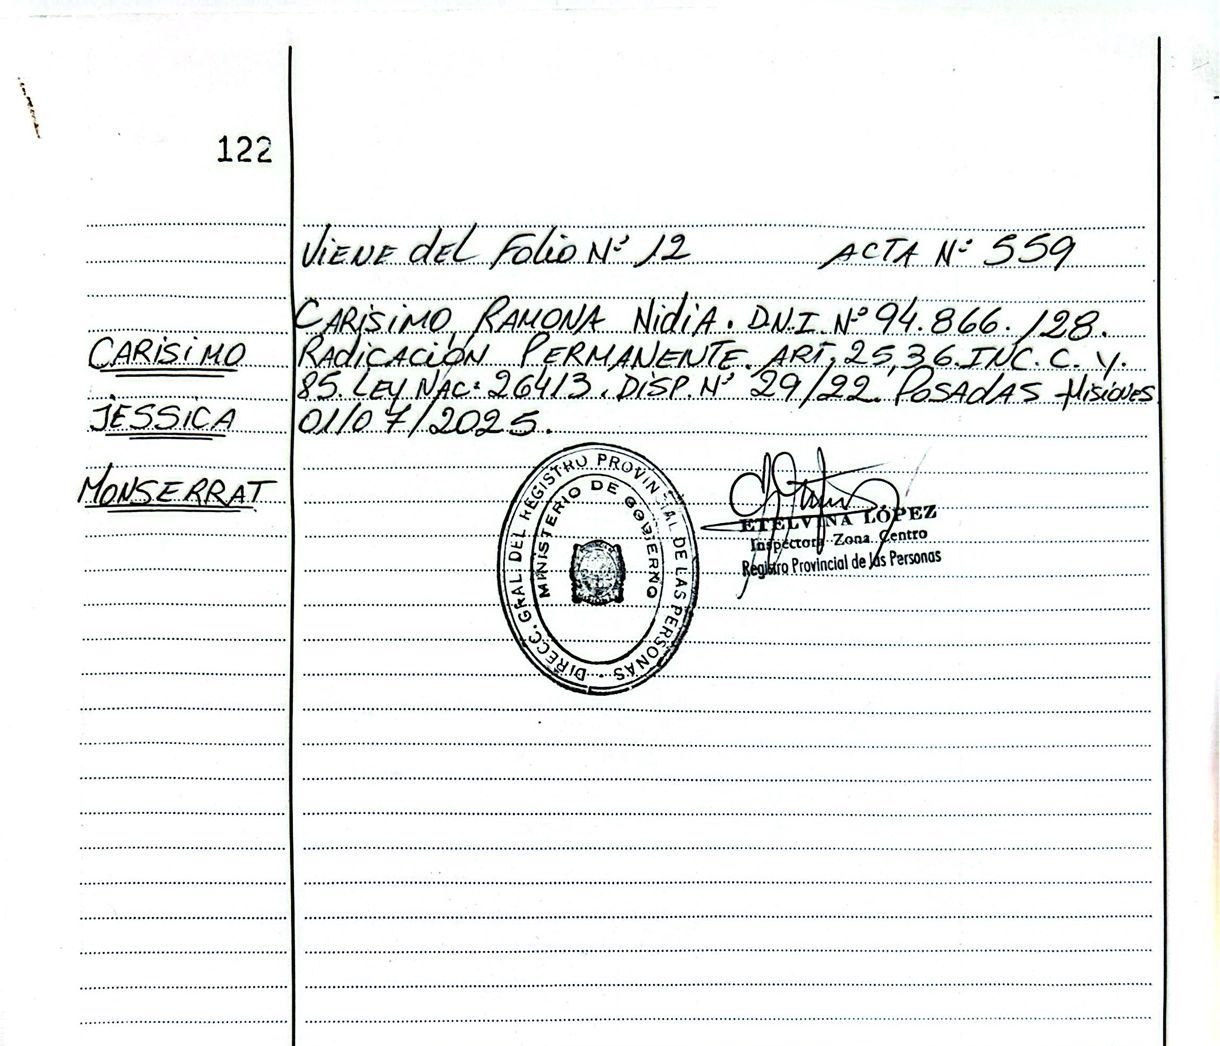 122
Viene del Folio Nº 12 ACTA Nº 559
CARiSiMO, RAMONA NidiA. D.N.I. Nº 94.866.128.
CARiSiMO
RAdiCACiÓN PERMANENTE. ART. 25,36.INC. C. Y.
85. LEY NAC: 26413. DiSP. Nº 29/22. POSADAS -MiSiONES
JESSiCA
01/07/2025.
MONSERRAT
DIRECC. GRAL. DEL REGISTRO PROVINCIAL DE LAS PERSONAS
MINISTERIO DE GOBIERNO
ETELVINA LÓPEZ
Inspectora Zona Centro
Registro Provincial de las Personas